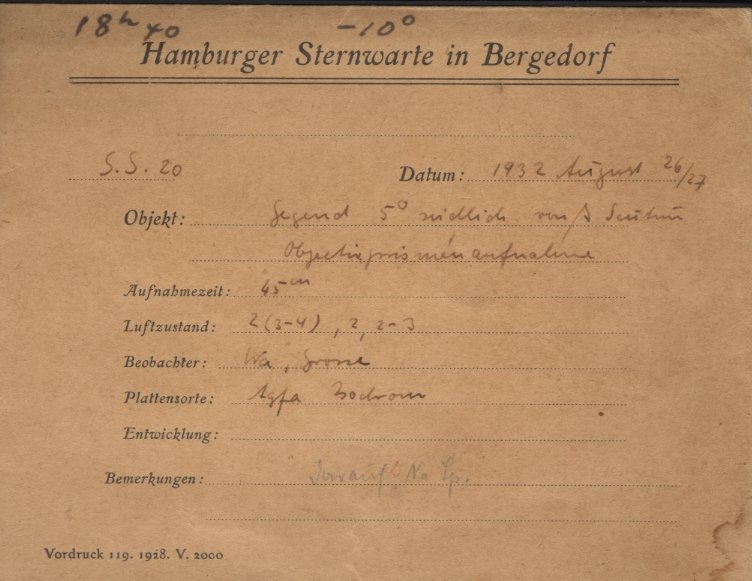 18h 40 -10°
Hamburger Sternwarte in Bergedorf
S.S. 20 Datum: 1932 August 26/27
Objekt: Gegend 5° südlich von β Scutum
Objectivprismenaufnahme
Aufnahmezeit: 45m
Luftzustand: 2(3-4), 2, 2-3
Beobachter: Wa, Grosse
Plattensorte: Agfa Isochrom
Entwicklung:
Bemerkungen: Darauf Na Sp.
Vordruck 119. 1928. V. 2000